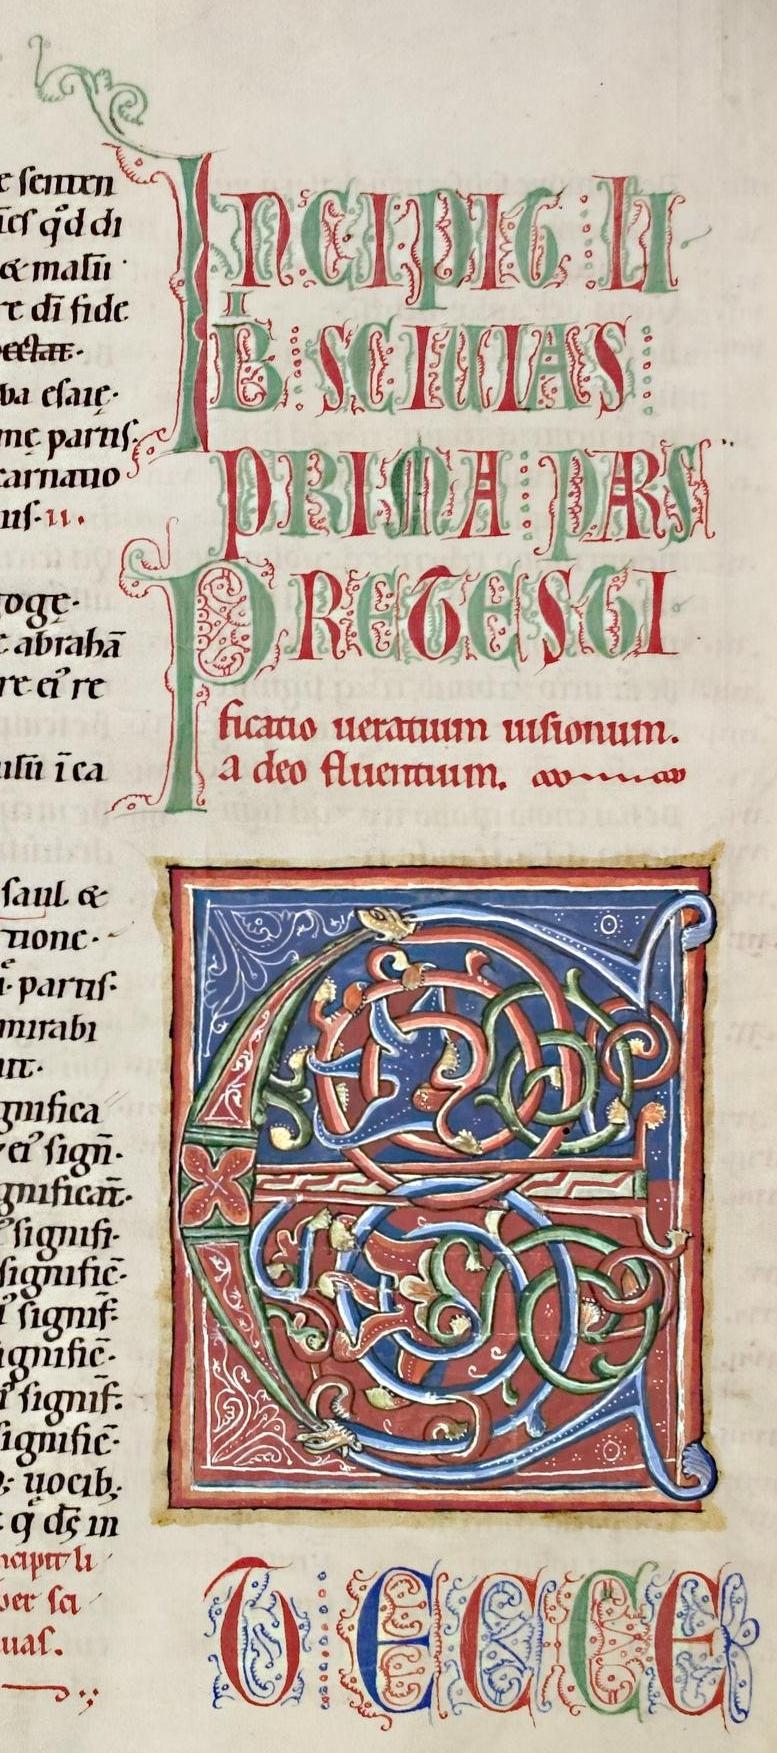 e senten
ies qd di
& malū
re dī fide
pectat.
ba esaię.
mę partis.
carnatio
nis. ii.
goge.
abrahā
re ei' re
usū ī ca
saul &
tione.
i. partis
mirabi
nt.
gnifica
ei' sign̄.
gnificat̄.
signifi
signific̄.
i signif̄.
ignific̄.
i' signif.
signific̄.
uocib;
q̄ ds̄ in
ncipit li
ber sci
uias.
INCIPIT LI
B SCIUIAS
PRIMA PARS
PRETESTI
ficatio ueratium uisionum.
a deo fluentium.
E
T ECCE